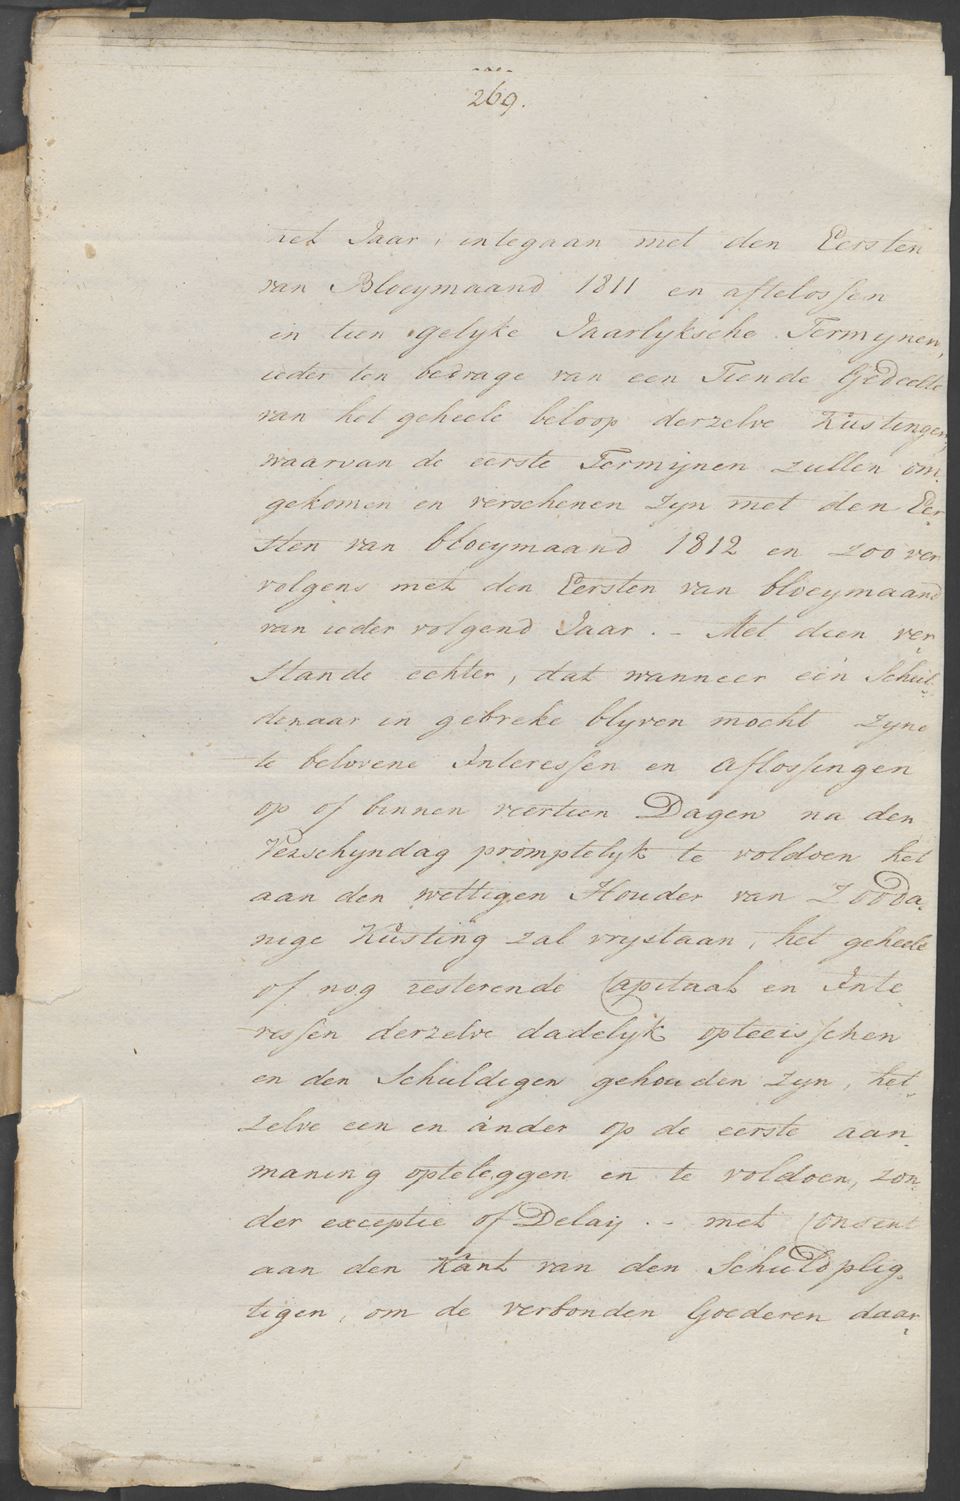 269.
het Jaar, integaan met den Eersten
van Bloeymaand 1811 en aftelossen
in tien gelyke Jaarlyksche Termynen,
ieder ten bedrage van een Tiende Gedeelte
van het geheele beloop derzelve Kustingen,
waarvan de eerste Termijnen zullen om-
gekomen en verschenen zyn met den Eer-
sten van bloeymaand 1812 en zoo ver
volgens met den Eersten van bloeymaand
van ieder volgend Jaar. - Met dien ver
stande echter, dat wanneer eén Schul-
denaar in gebreke blyven mocht zyne
te belovene Interessen en aflossingen
op of binnen veertien Dagen na den
Verschyndag promptelyk te voldoen het
aan den wettigen Houder van Zooda-
nige Kusting zal vrystaan, het geheele
of nog resterende Capitaal en Inte-
ressen derzelve dadelijk opteeisschen
en den Schuldigen gehouden zyn, het-
zelve een en ander op de eerste aan-
maning opteleggen en te voldoen, zon-
der exceptie of Delaij. - met Consent
aan den Kant van den Schuldplig-
tigen, om de verbonden Goederen daar-